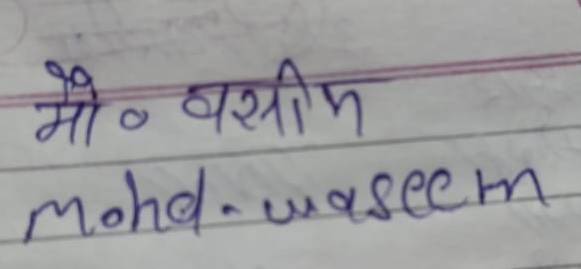 मौ० वसीम
Mohd. waseem